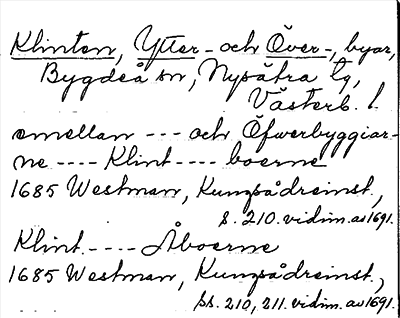 Klinten, Ytter- och Över-, byar,
Bygdeå sn, Nysätra tg,
Västerb. l.
emellan --- och Öfwerbyggiar-
ne ---- Klint ---- boerne
1685 Westman, Kungsådreinst.,
s. 210. vidim. av 1691.
Klint ---- Åboerne
1685 Westman, Kungsådreinst.,
ss. 210, 211. vidim. av 1691.